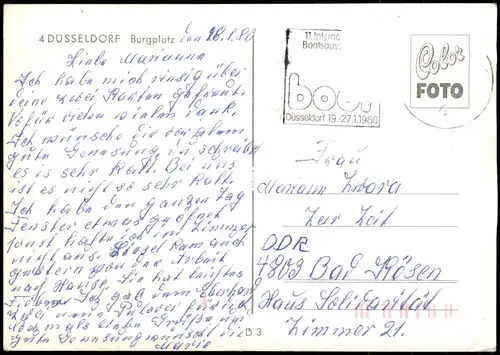 4 DÜSSELDORF Burgplatz den 18.1.80
Liebe Marianne
Ich habe mich riesig über
deine zwei Karten gefreut.
Dafür vielen vielen Dank.
Ich wünsche dir vor allem
gute Genesung. Du schreibst
es is sehr Kalt. Bei uns
ist es nicht so sehr Kalt.
Ich habe den ganzen Tag
Fenster etwas geöffnet
sonst halte ich im Zimmer
nicht aus. Gisel kam auch
gestern von der Arbeit
nach Hause. Sie hat leichtes
Fieber. Ich gab dem
zwei neue Pulover für ich
noch mals einen
gute Genesung wünscht die
Maria
11. Interna
Bootsaus
boot
Düsseldorf 19.-27.1.1980
Color
FOTO
Frau
Mariann Zwora
Zur Zeit
DDR
4803 Bad Kösen
Haus Solidarität
Zimmer 21.
D 3